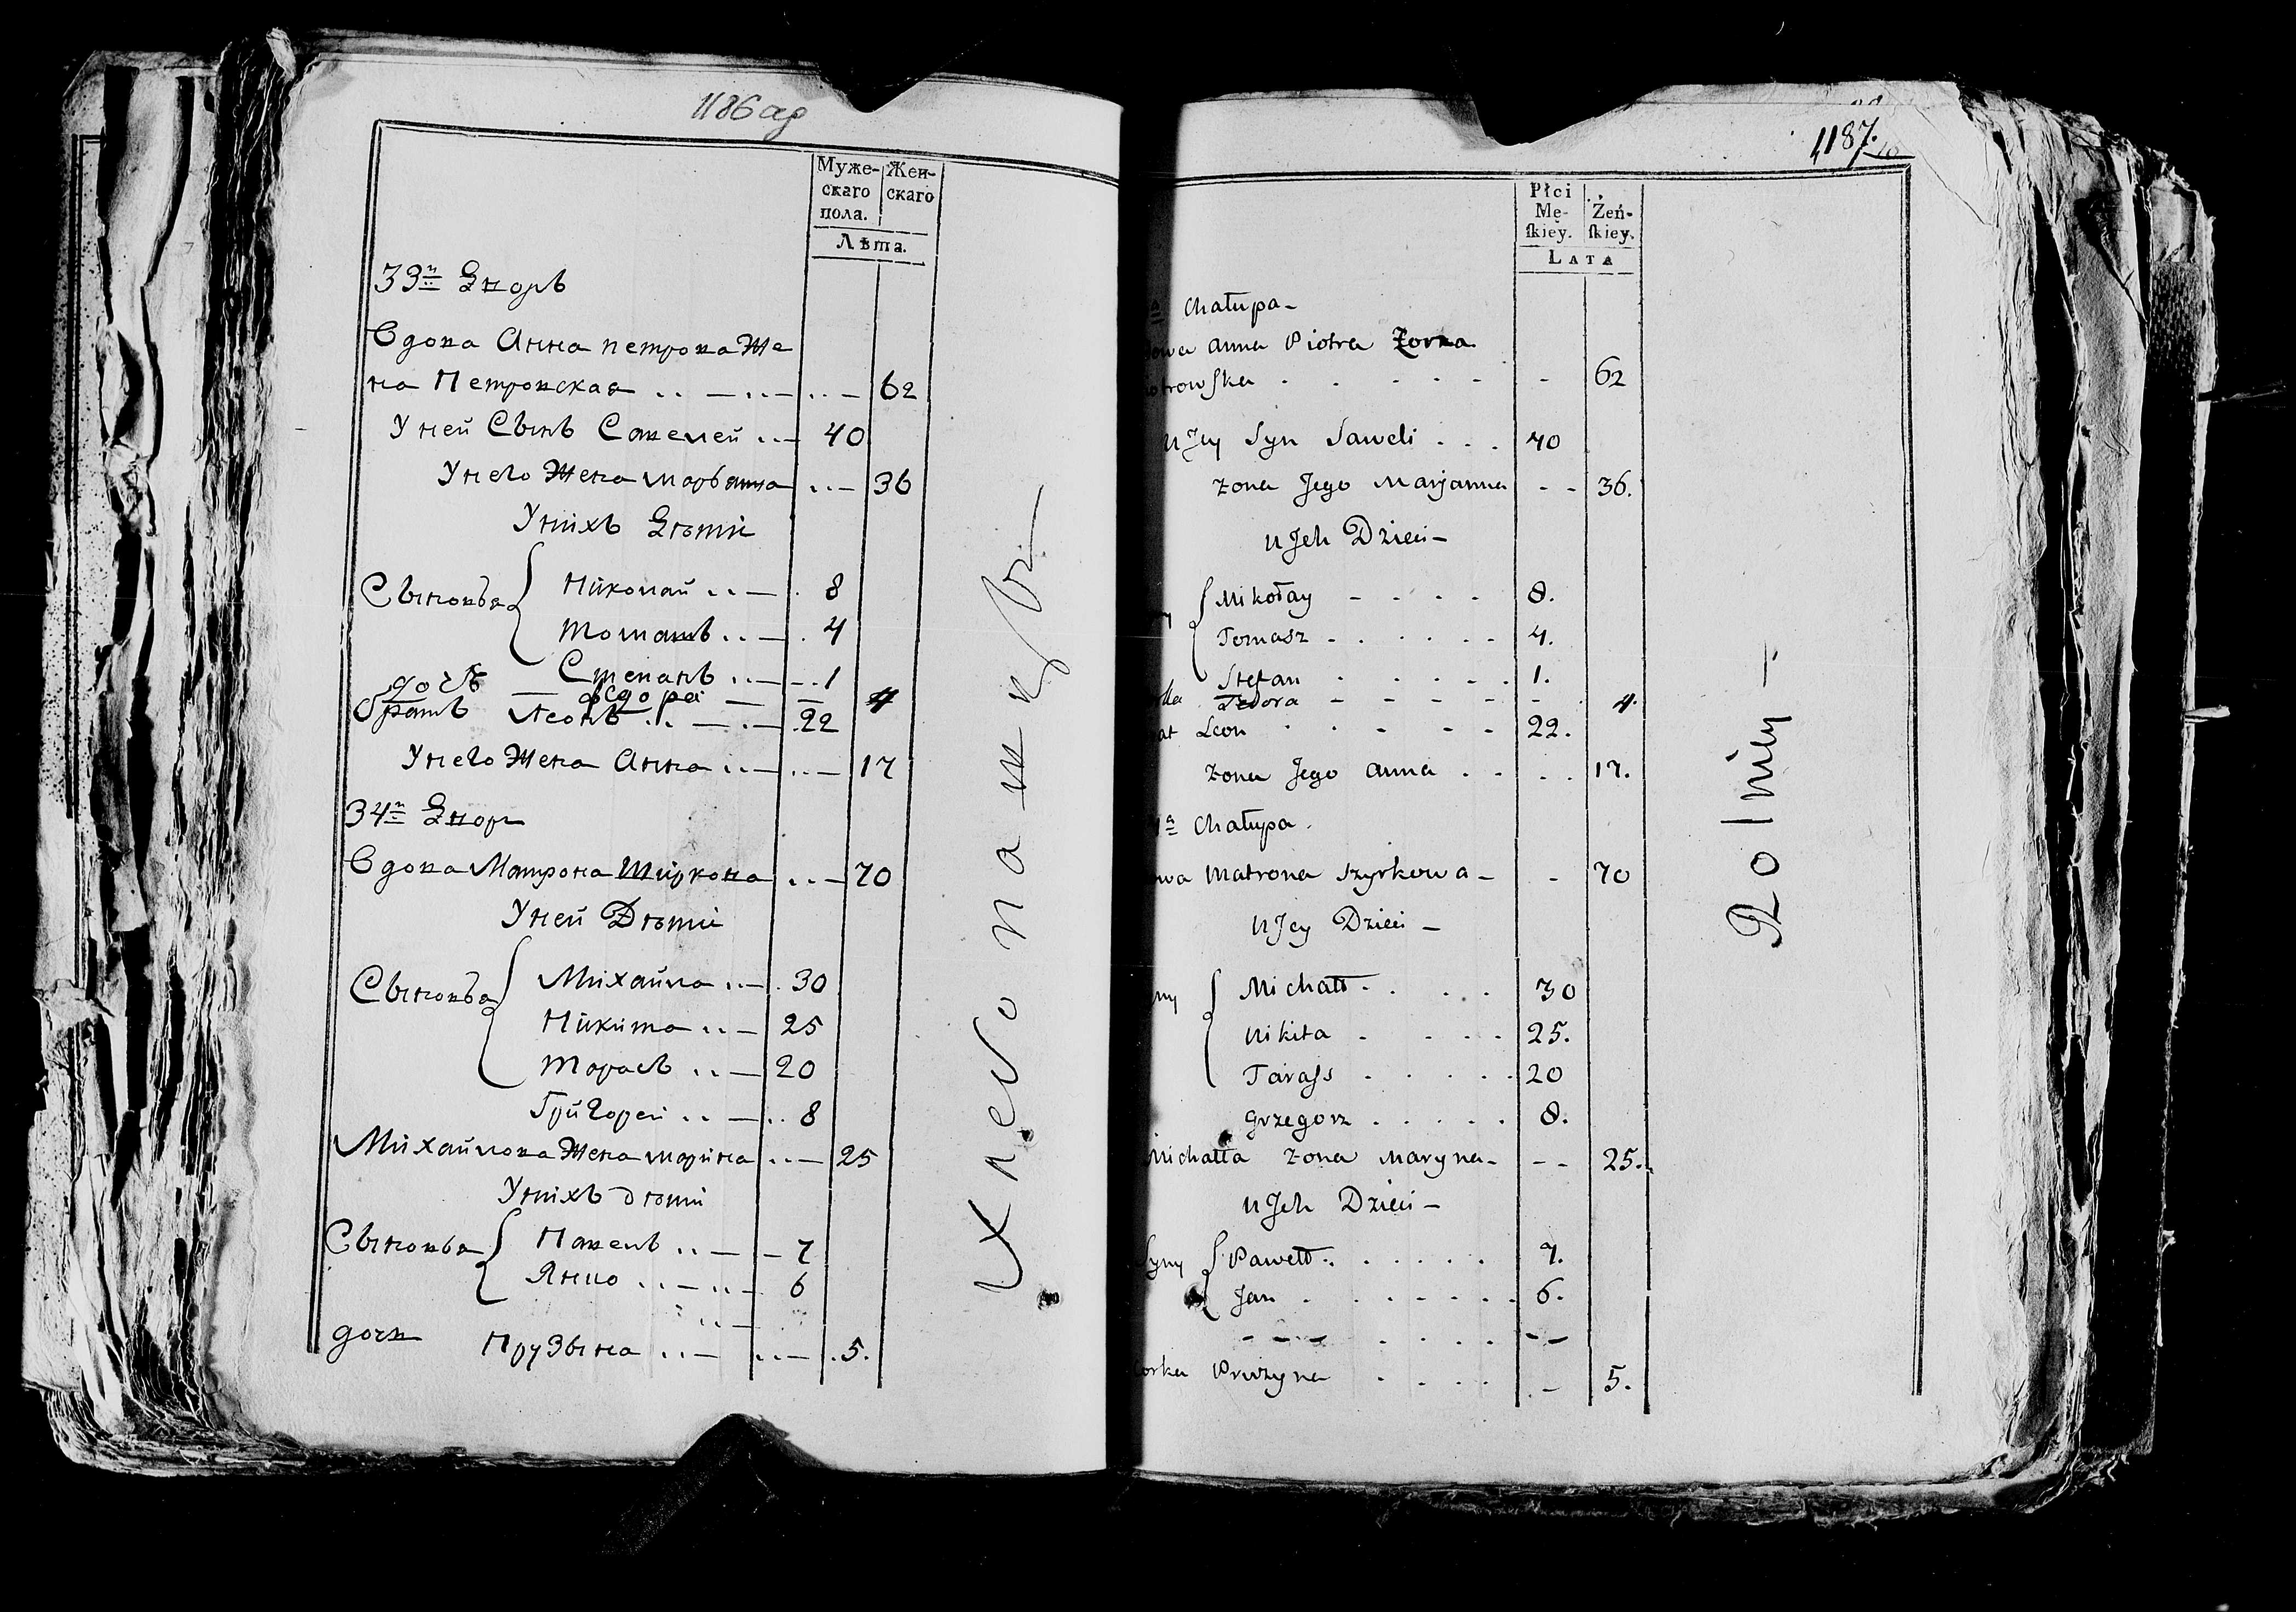 1186 об
Муже-
скаго
пола.
Жен-
скаго
Лѣта.
33й Дворъ
Вдова Анна петрова Же
на Петровская 62
У ней Сынъ Савелей 40
У него Жена марьяна 36
У нихъ Дѣти
Сыновья
Николай 8
томашъ 4
Степанъ 1
дочь федора 4
братъ леонъ 22
У него Жена Анна 17
34й Двор
Вдова МатронаШиркова 70
У ней Дѣти
Сыновья
Михайла 30
Никита 25
тарасъ 20
Григорей 8
Михайлова Жена марина 25
У нихъ дѣти
Сыновья
Павелъ 7
Янко 6
дочь Прузына 5.
Хлебопашцы
1187.
Płci
Mę-
skiey.
Żeń-
skiey.
LATA
Chałupa
owa anna Piotra Żona
otrowska 62
u Jey Syn Saweli 40
żona Jego Marjanna 36.
u Jch Dzieci
Mikołay 8.
Tomasz 4.
Stefan 1.
Fedora 4.
at Leon 22.
żona Jego anna 17.
4a Chałupa.
owa Matrona Szyrkowa 70
u Jey Dzieci
yny
Michałł 30
Nikita 25.
Tarass 20
Grzegorz 8.
Michałła żona Maryna 25.
u Jch Dzieci
Syny
Pawełł 7.
Jan 6.
orka Pruzyna 5.
Rolniey